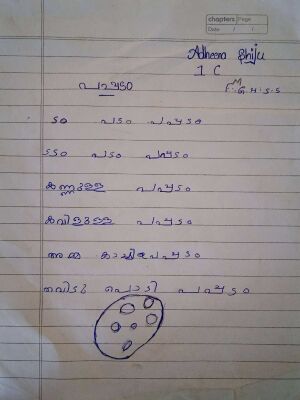 chapters Page
Date / /
Adheena Shiju
1 C
F M G H S S
പപ്പടം
ടം പടം പപ്പടം
ട്ടടം പടം പപ്പടം
കണ്ണുള്ള പപ്പടം
കവിളുള്ള പപ്പടം
അമ്മ കാച്ചിയ പപ്പടം
തവിടു പൊടി പപ്പടം